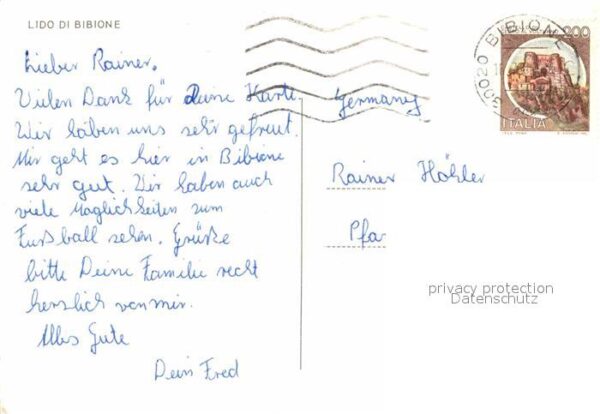 LIDO DI BIBIONE
Lieber Rainer.
Vielen Dank für deine Karte
Wir haben uns sehr gefreut.
Mir geht es hier in Bibione
sehr gut. Wir haben auch
viele Möglichkeiten zum
Fußball sehen. Grüße
bitte Deine Familie recht
herzlich von mir.
Alles Gute
Dein Fred
30020 BIBIONE
200
ITALIA
Germany
Rainer Höhler
Pfa
privacy protection
Datenschutz